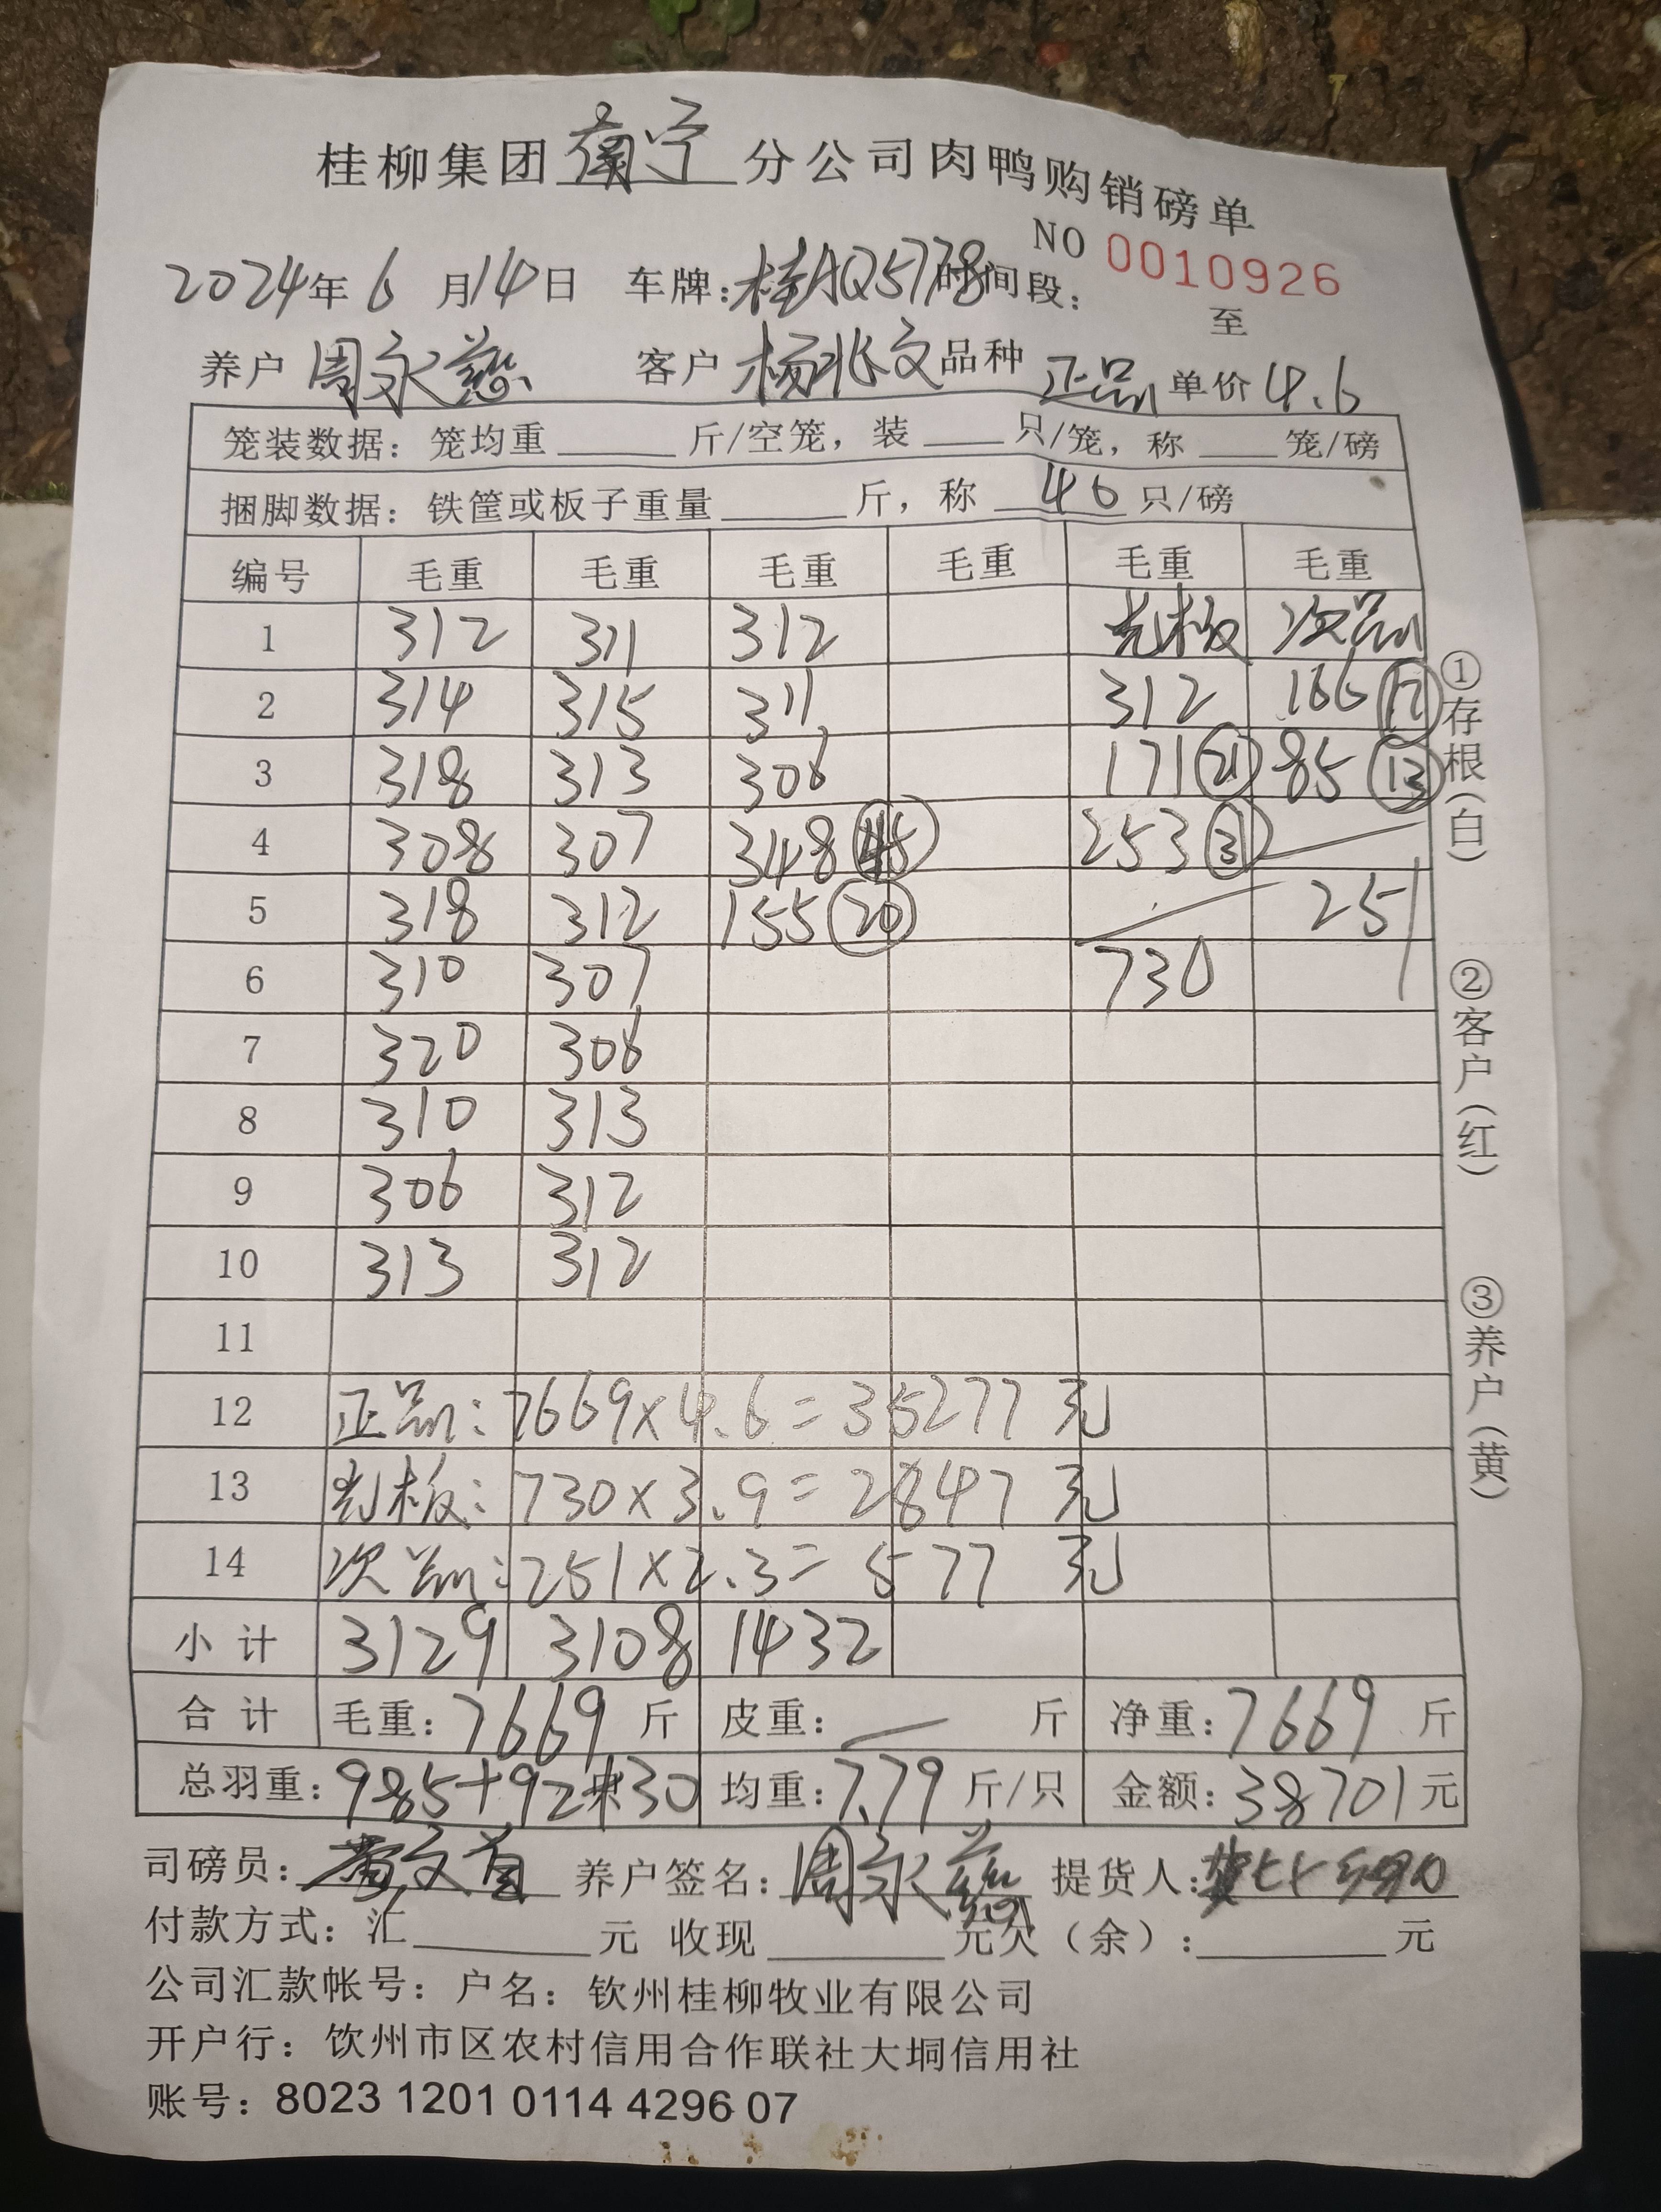 桂柳集团南宁分公司肉鸭购销磅单
NO 0010926
2024年6月14日 车牌:桂AQ5778时间段: 至
养户 周永慈 客户 杨兆文 品种 正品 单价4.6
笼装数据: 笼均重 斤/空笼, 装 只/笼, 称 笼/磅
捆脚数据: 铁筐或板子重量 斤, 称 40 只/磅
编号 毛重 毛重 毛重 毛重 毛重 毛重
1 312 311 312 光板 次品
2 314 315 311 312 166
3 318 313 306 171 (21) 85 (13)
4 308 307 348 (45) 253 (31)
5 318 312 155 (20) 251
6 310 307 730
7 320 306
8 310 313
9 306 312
10 313 312
11
12 正品: 7669×4.6=35277元
13 光板: 730×3.9=2847元
14 次品: 251×2.3=577元
小计 3129 3108 1432
合计 毛重: 7669 斤 皮重: — 斤 净重: 7669 斤
总羽重: 985+92+30 均重: 7.79 斤/只 金额: 38701元
司磅员: 黄文 养户签名: 周永慈 提货人:
付款方式: 汇 元 收现 元欠(余): 元
公司汇款帐号: 户名: 钦州桂柳牧业有限公司
开户行: 钦州市区农村信用合作联社大垌信用社
账号: 8023 1201 0114 4296 07
①存根(白)
②客户(红)
③养户(黄)